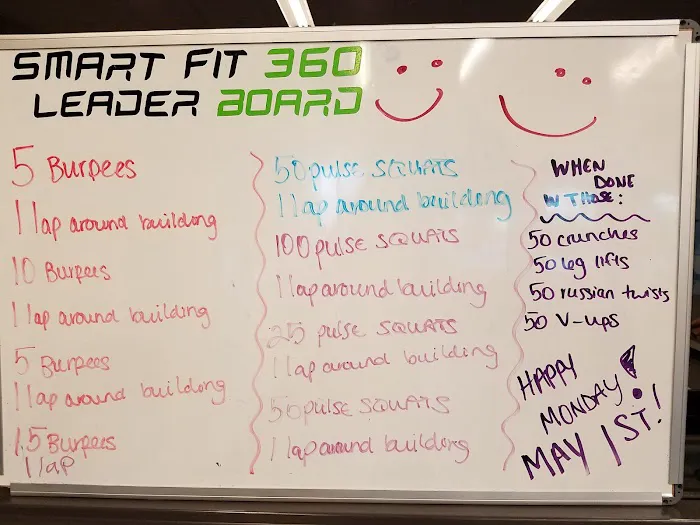 SMART FIT 360
LEADER BOARD
5 Burpees
1 lap around building
10 Burpees
1 lap around building
5 Burpees
1 lap around building
15 Burpees
1 lap
50 pulse SQUATS
1 lap around building
100 pulse SQUATS
1 lap around building
25 pulse SQUATS
1 lap around building
50 pulse SQUATS
1 lap around building
WHEN
DONE
W THOSE:
50 crunches
50 leg lifts
50 russian twists
50 V-ups
HAPPY
MONDAY!
MAY 1ST!